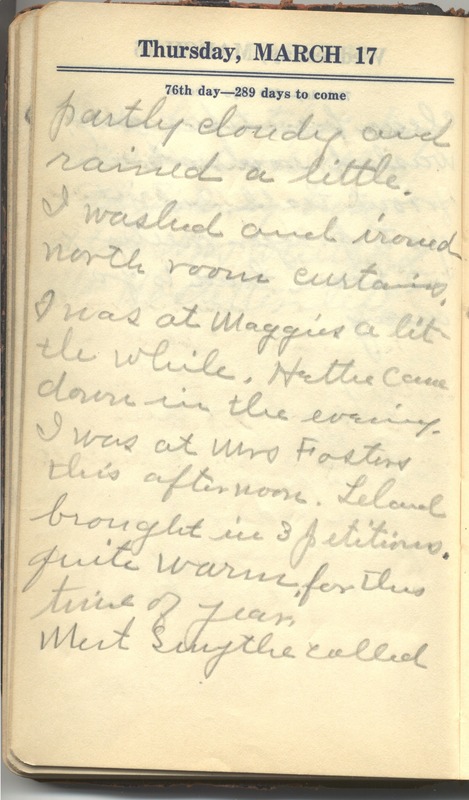 Thursday, MARCH 17
76th day—289 days to come
partly cloudy and
rained a little.
I washed and ironed
north room curtains.
I was at Maggies a lit-
tle while. Hettie came
down in the evening.
I was at Mrs Fosters
this afternoon. Leland
brought in 3 petitions.
quite warm for this
time of year.
Mert Smythe called